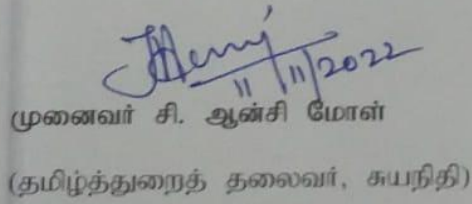 11/11/2022
முனைவர் சி. ஆன்சி மோள்
(தமிழ்த்துறைத் தலைவர், சுயநிதி)